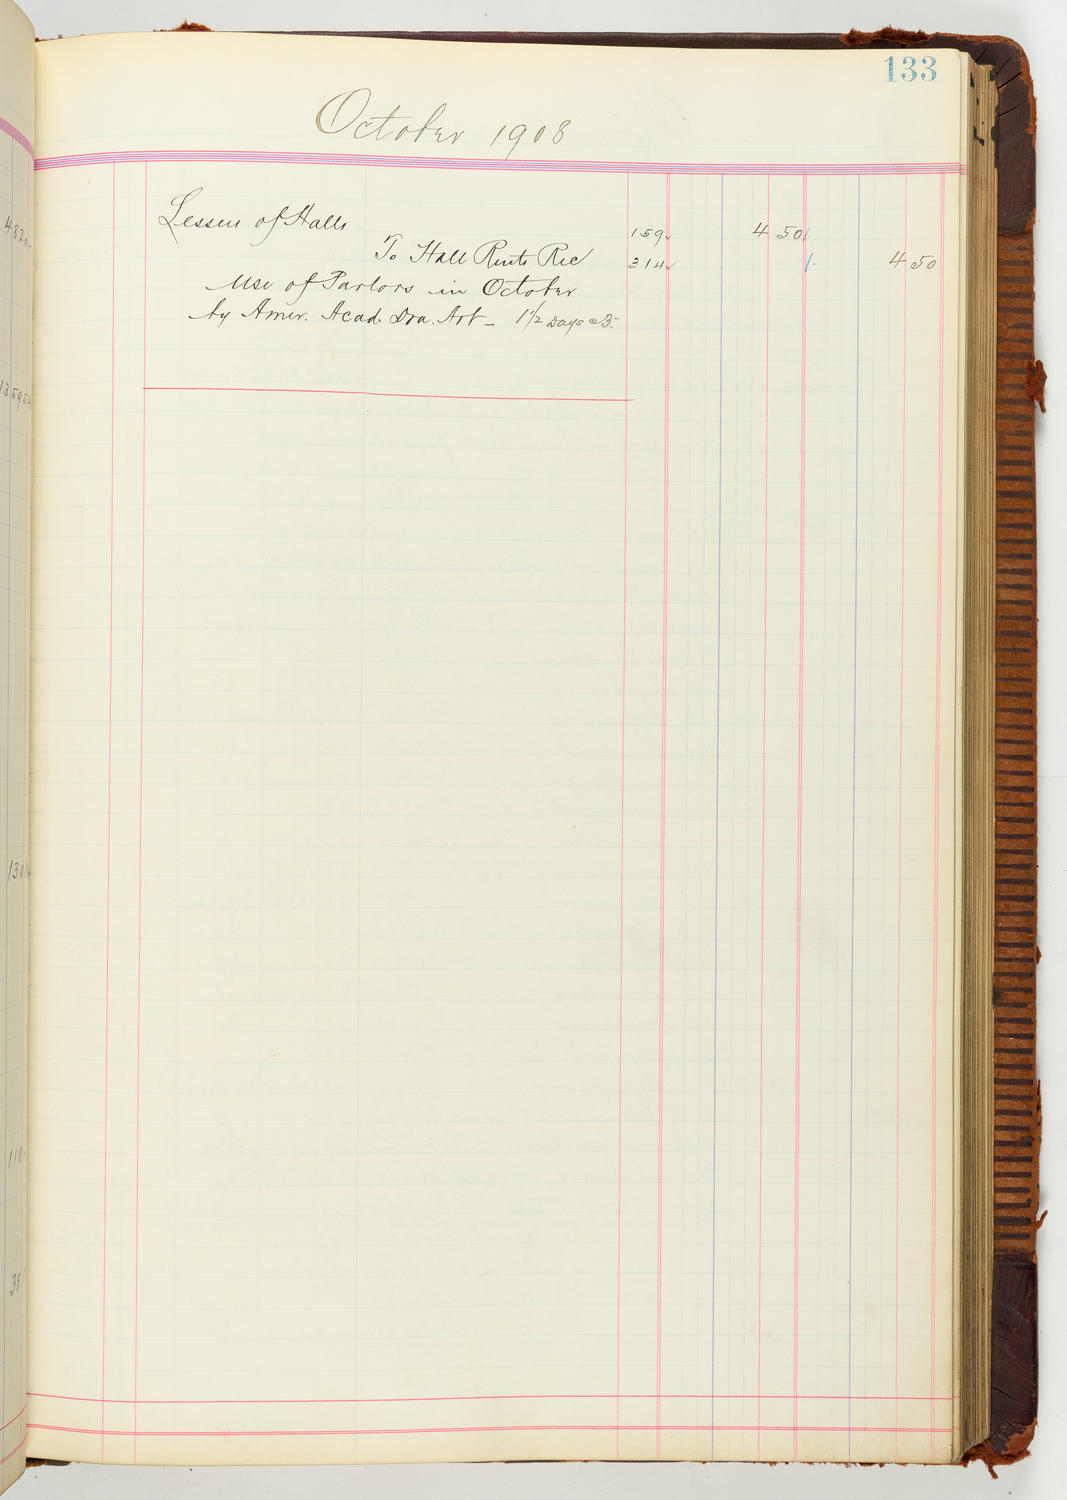 133
October 1908
Lessees of Halls 159✓ 4 50
To Hall Rents Rec 314✓ 4 50
Use of Parlors in October
by Amer. Acad. Dra. Art – 1 1/2 Days @ 3.–
482
13595
130
110
38